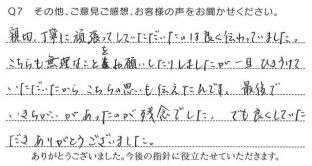 Q7 その他、ご意見ご感想、お客様の声をお聞かせください。
親切、丁寧に頑張ってしていただいたのは良く伝わっていました。
こちらも無理なことをお願いしたりしましたが一旦ひきうけて
いただいたからこちらの思いも伝えたんです。最後で
いきちがいがあったのが残念でした。でも良くしていた
だきありがとうございました。
ありがとうございました。今後の指針に役立たせていただきます。